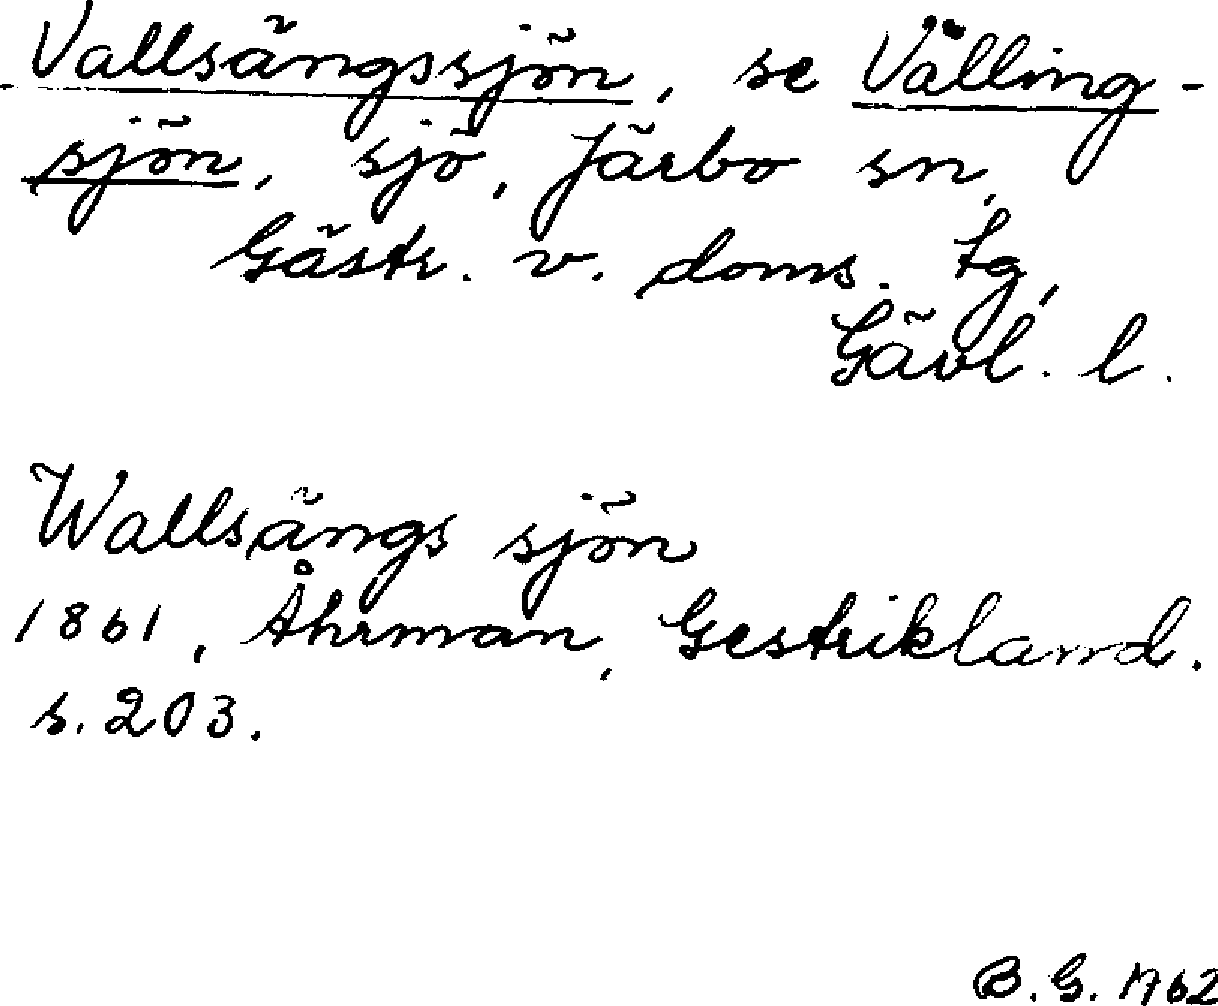 Vallsängssjön, se Välling-
sjön, sjö, Järbo sn,
Gästr. v. doms. tg,
Gävl. l.
Wallsängs sjön
1861, Åhrman, Gestrikland.
s. 203.
B. G. 1962